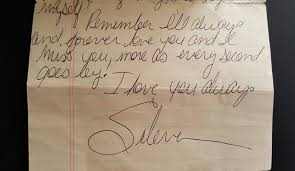 myself.
Remember I'll always
and forever love you and I
miss you, more as every second
goes by.
I love you always